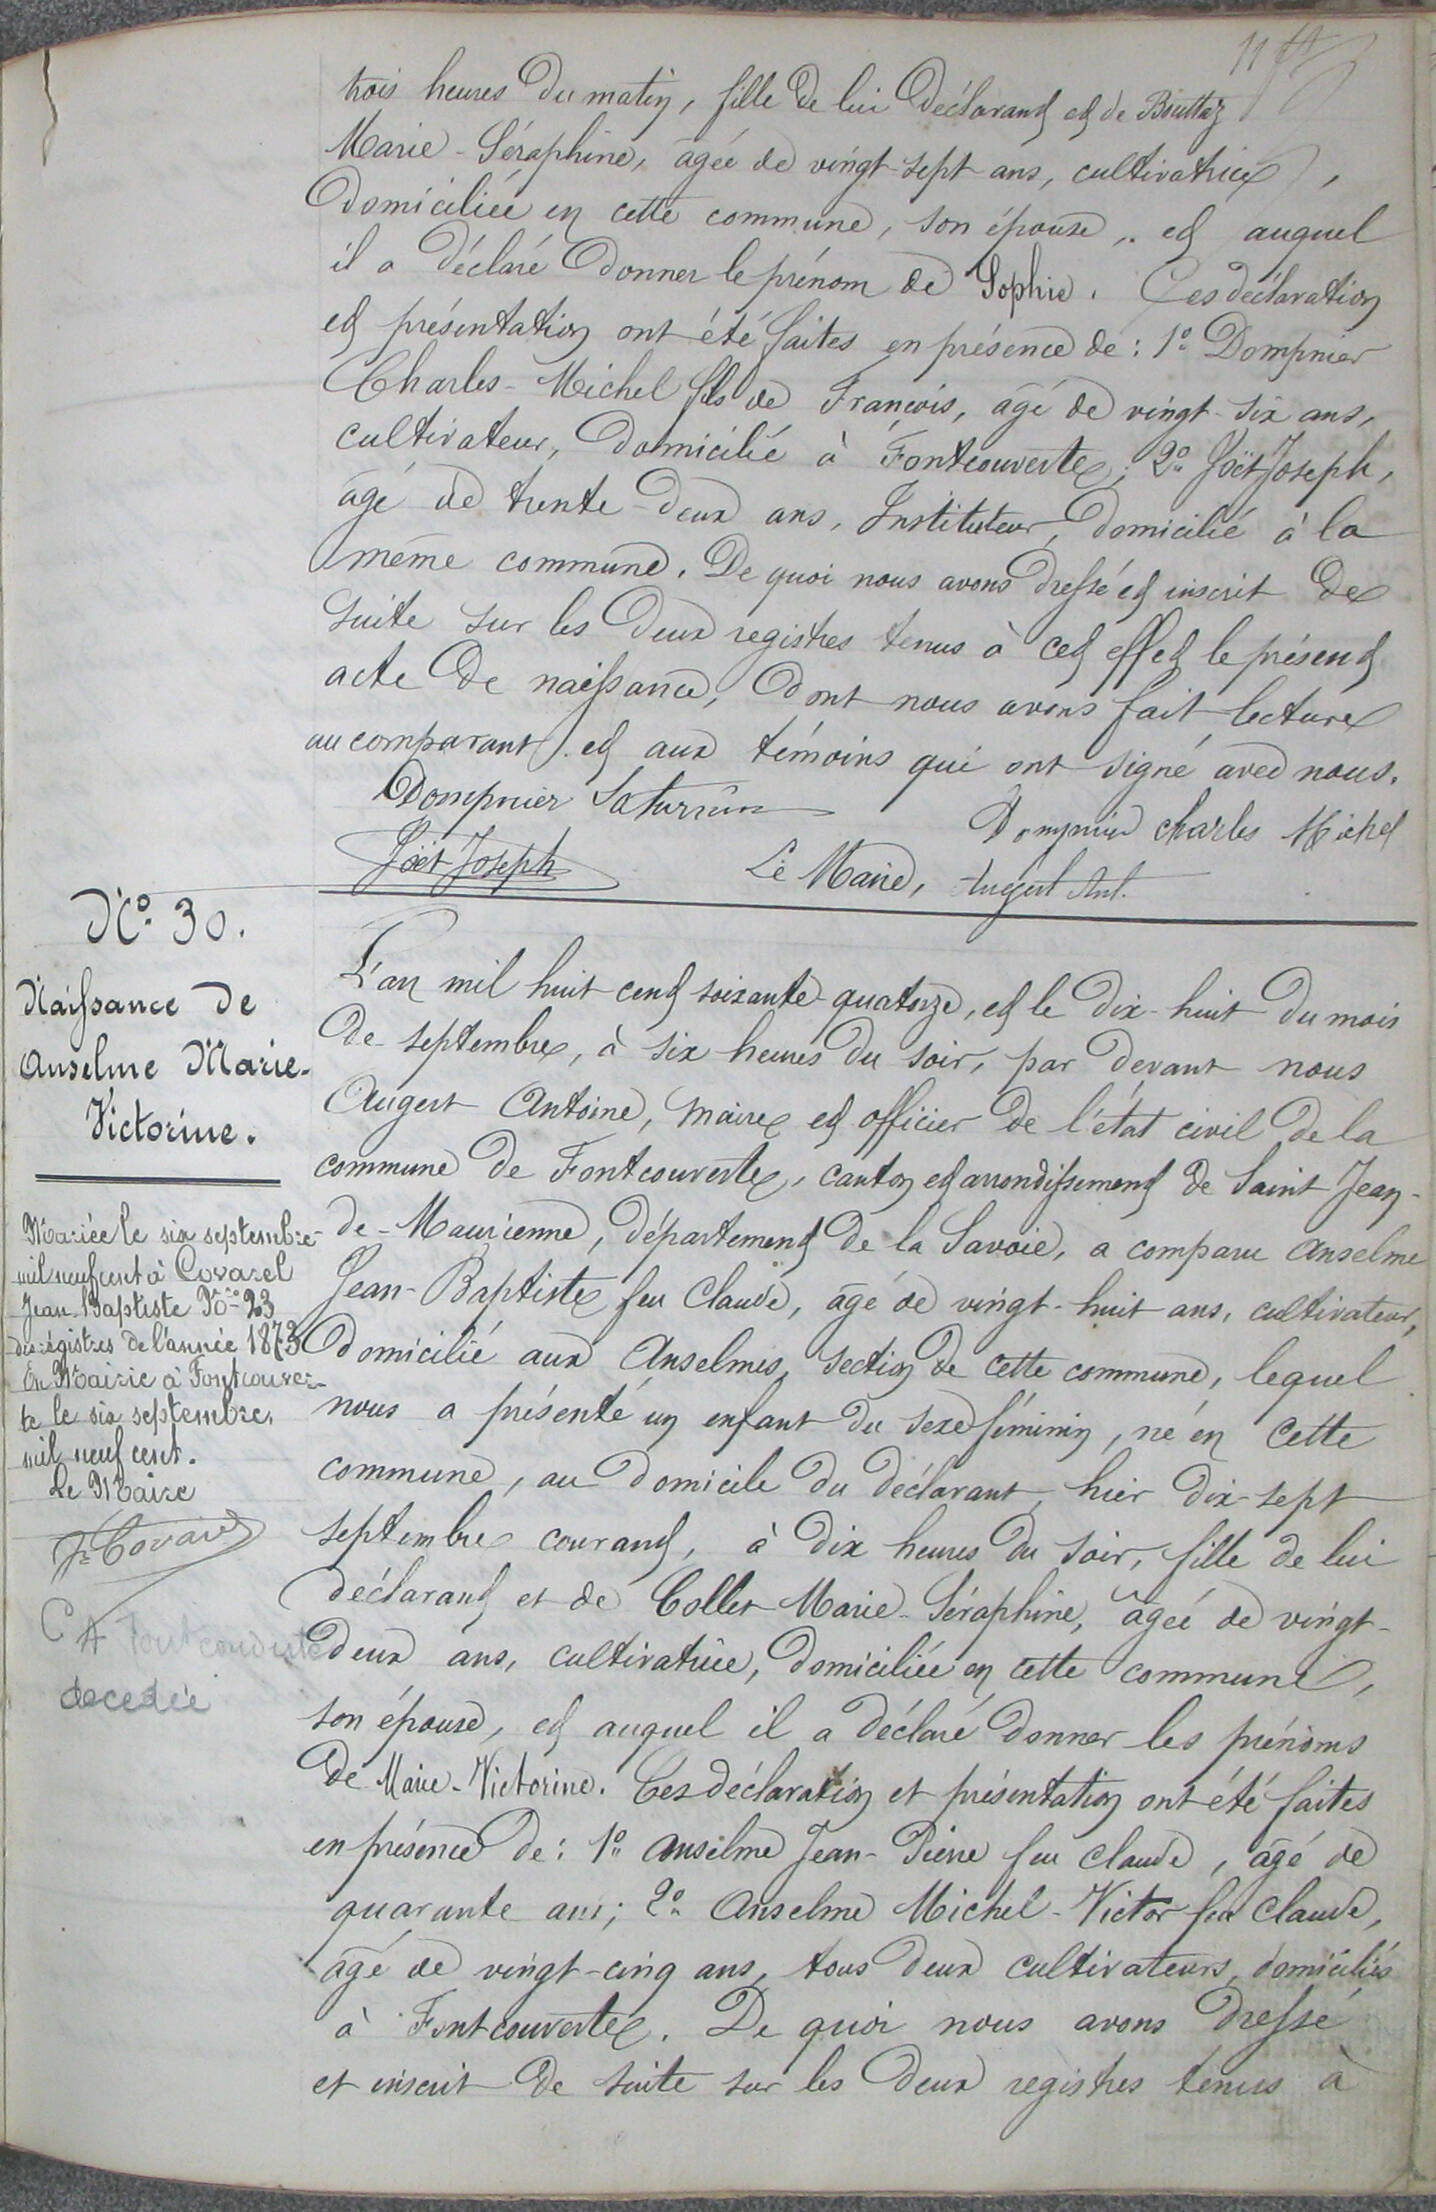 11
trois heures du matin, fille de lui déclarant et de Bouttaz
Marie-Séraphine, âgée de vingt-sept ans, cultivatrice,
domiciliée en cette commune, son épouse, et auquel
il a déclaré donner le prénom de Sophie. Ces déclaration
et présentation ont été faites en présence de: 1° Dompnier
Charles-Michel fils de François, âgé de vingt-six ans,
cultivateur, domicilié à Fontcouverte; 2° Joët Joseph,
âgé de trente-deux ans, Instituteur, domicilié à la
même commune. De quoi nous avons dressé et inscrit de
suite sur les deux registres tenus à cet effet le présent
acte de naissance, dont nous avons fait lecture
au comparant et aux témoins qui ont signé avec nous.
Dompnier Saturnin
Dompnier Charles Michel
Joët Joseph
Le Maire, Augert Ant.
N° 30.
Naissance de
Anselme Marie-
Victorine.
Mariée le six septembre
mil neuf cent à Covarel
Jean-Baptiste N° 23
des régistres de l'année 1873
En Mairie à Fontcouver-
te le six septembre
mil neuf cent.
Le Maire
décédée
L'an mil huit cent soixante-quatorze, et le dix-huit du mois
de septembre, à six heures du soir, par devant nous
Augert Antoine, maire et officier de l'état civil de la
commune de Fontcouverte, canton et arrondissement de Saint Jean-
de-Maurienne, département de la Savoie, a comparu Anselme
Jean-Baptiste feu Claude, âgé de vingt-huit ans, cultivateur,
domicilié aux Anselmes, section de cette commune, lequel
nous a présenté un enfant du sexe féminin, né en cette
commune, au domicile du déclarant, hier dix-sept
septembre courant, à dix heures du soir, fille de lui
déclarant et de Collet Marie-Séraphine, âgée de vingt-
deux ans, cultivatrice, domiciliée en cette commune,
son épouse, et auquel il a déclaré donner les prénoms
de Marie-Victorine. Ces déclaration et présentation ont été faites
en présence de: 1° Anselme Jean-Pierre feu Claude, âgé de
quarante ans; 2° Anselme Michel-Victor feu Claude,
âgé de vingt-cinq ans, tous deux cultivateurs, domiciliés
à Fontcouverte. De quoi nous avons dressé
et inscrit de suite sur les deux registres tenus à